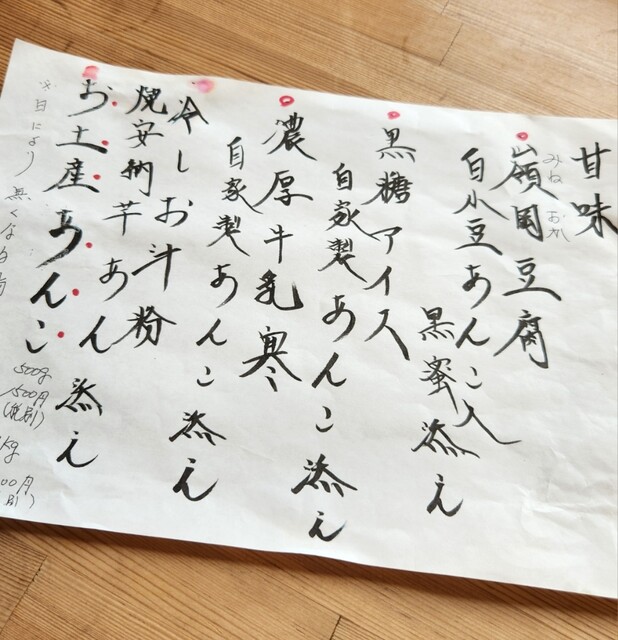 甘味
嶺岡豆腐
みね おか
白小豆あんこ入
黒蜜添え
黒糖アイス
自家製あんこ添え
濃厚牛乳寒
自家製あんこ添え
冷しお汁粉
焼安納芋あん添え
お土産あんこ
500g
1500円
(税別)
kg
00円
別)
※日により無くなる